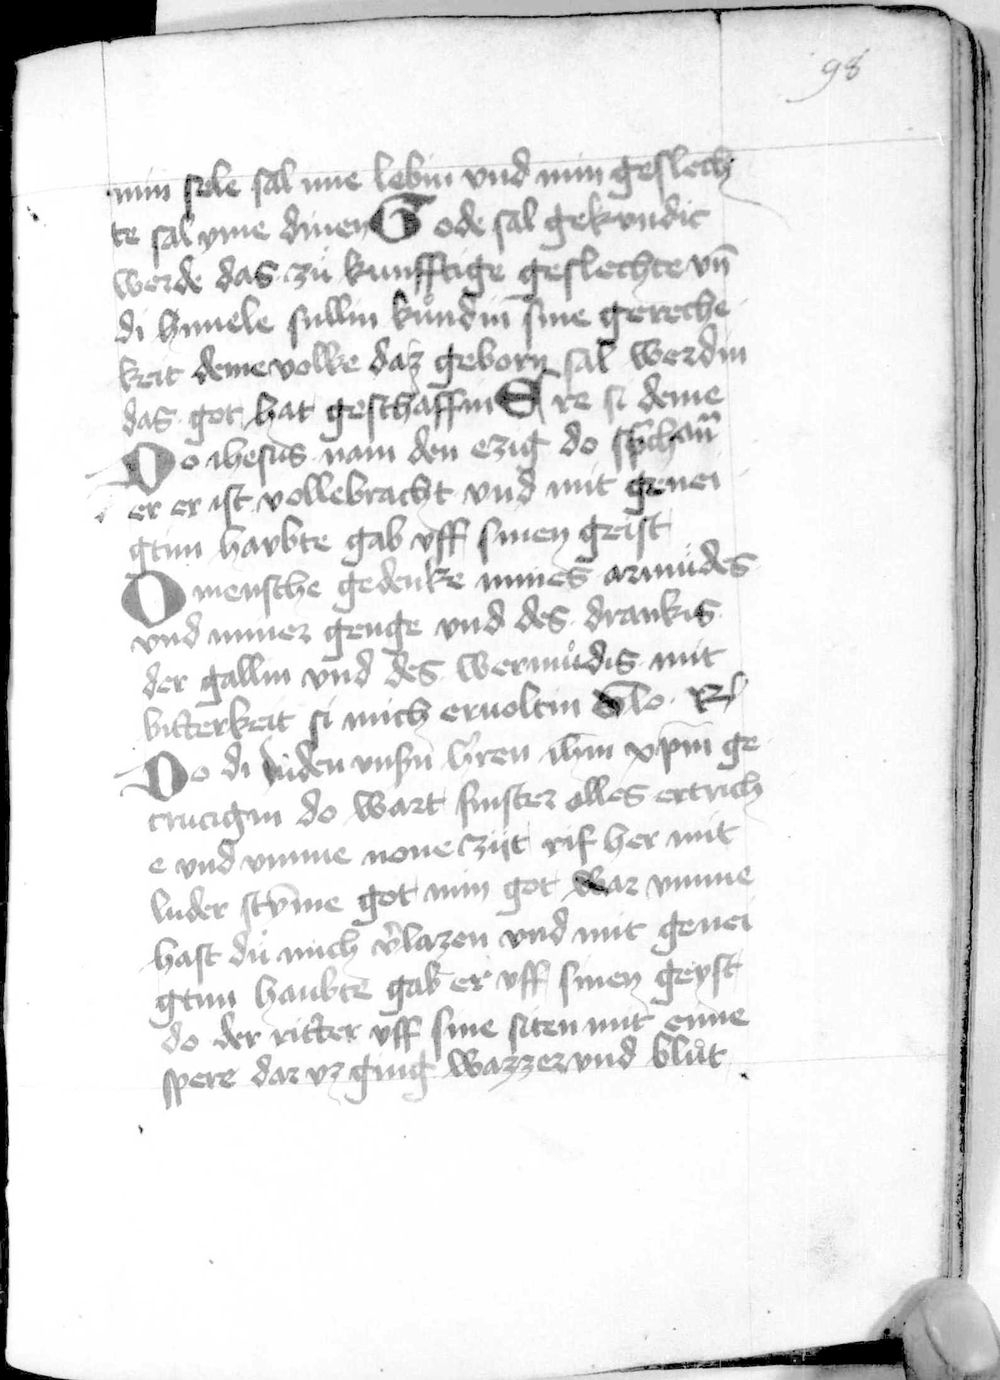 98
min sele sal ime lebin vnd min geslech
te sal yme dinen Gode sal gekundic
werde das zu kunfftige geslechte vn̄
di himele sullin kůndin sine gereche
keit deme volke daz geborn sal werdin
das got hat geschaffin Ere si deme
Do ihesus nam den ezig do sp̄ch
er er ist vollebracht vnd mit genei
gtim haubte gab vff sinen geist
O mensche gedenke mines armudes
vnd miner genge vnd des drankis
der gallin vnd des wermůdis mit
bitterkeit si mich eruoltin Glo. R
Do di iuden vnsn̄ h̄ren ihm̄ xp̄m ge
crucigin do wart finster alles ertrich
e vnd vmme none ziit rif her mit
luder stȳme got min got war vmme
hast du mich v̄lazen vnd mit genei
gtim haubte gab er vff sinen geyst
do der ritter vff sine siten mit eime
spere dar vz ging wazzer vnd blůt